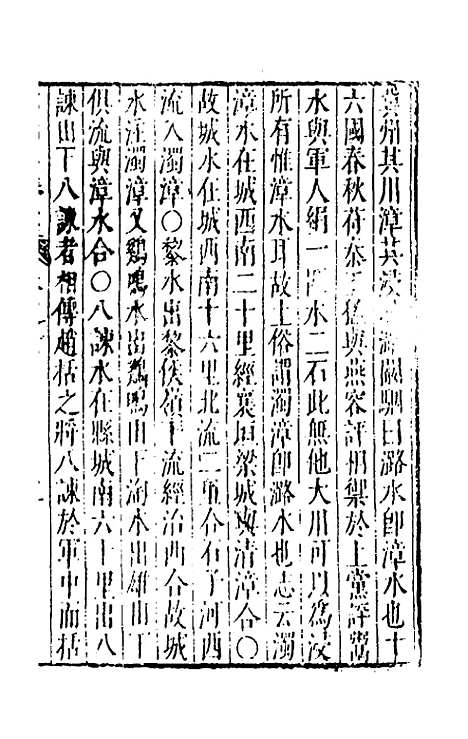 冀州其川漳其浸潞闞駰曰潞水卽漳水也十
六國春秋苻秦王猛與燕容評相禦於上黨評鬻
水與軍人絹一匹水二石此無他大川可以爲浸
所有惟漳水耳故土俗謂濁漳卽潞水也志云濁
漳水在城西南二十里經襄垣梁城與清漳合〇
故城水在城西南十六里北流二里合石子河西
流入濁漳〇黎水出黎侯嶺下流經治西合故城
水注濁漳又鷄鳴水出鷄鳴山下淘水出雄山下
俱流與漳水合〇八諫水在縣城南六十里出八
諫山下八諫者相傳趙括之將八諫於軍中而括